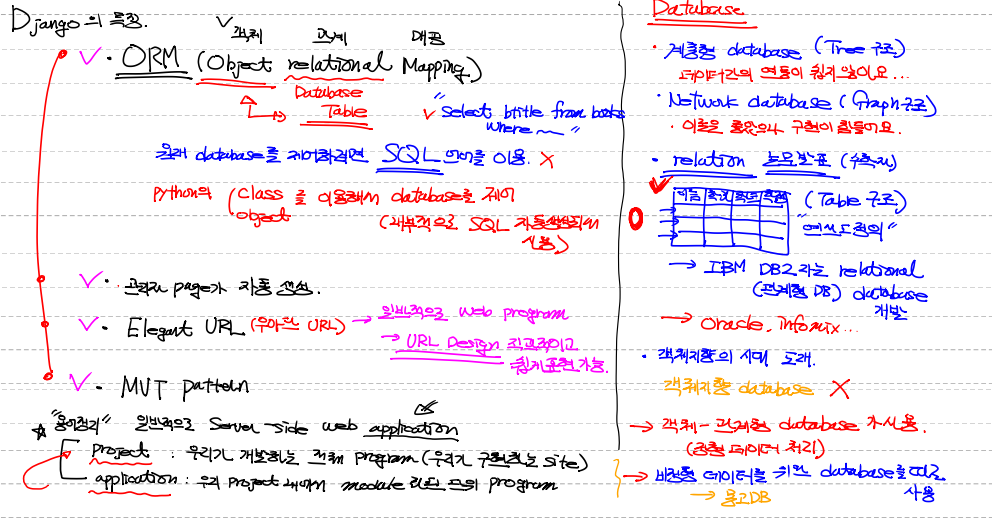 Django의 특징.
객체 관계 매핑
ORM (Object relational Mapping)
Database
Table
"Select btitle from books
where ~~ "
원래 database를 제어하려면 SQL 언어를 이용. X
python의 (class object 를 이용해서 database를 제어
(내부적으로 SQL 자동생성해서
사용)
관리자 page가 자동 생성.
Elegant URL (우아한 URL) → 일반적으로 web program
→ URL Design 직관적이고
쉽게 표현 가능.
MVT pattern
"용어정리" 일반적으로 Server-side web application
project : 우리가 개발하는 전체 program (우리가 구현하는 site)
application : 우리 project 내에서 module 화된 program
Database
계층형 database (Tree 구조)
데이터간의 연동이 쉽지않아요...
Network database (Graph구조)
이론은 좋았으나 구현이 힘들어요.
relation 논문발표 (수학자)
이름
(Table 구조)
→ IBM DB2라는 relational
(관계형 DB) database
개발
→ Oracle. infomix...
객체지향의 시대 도래.
객체지향 database X
→ 객체-관계형 database 가 사용.
(정형 데이터 처리)
→ 비정형 데이터를 위한 database를 따로
사용
→ 몽고DB